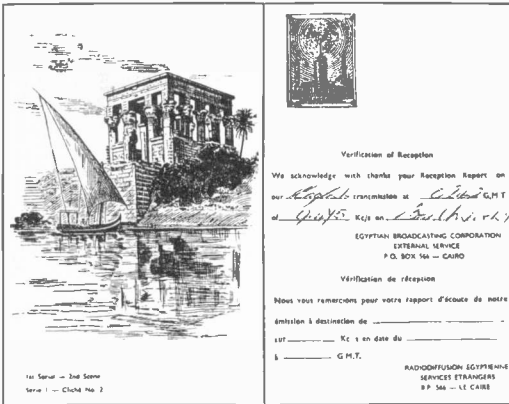 1st Serial — 2nd Scene
Série 1 — Cliché No. 2
Verification of Reception
We acknowledge with thanks your Reception Report on
our transmission at G.M.T
of Kc/s on
EGYPTIAN BROADCASTING CORPORATION
EXTERNAL SERVICE
P.O. BOX 566 — CAIRO
Vérification de réception
Nous vous remercions pour votre rapport d'écoute de notre
émission à destination de
sur Kc s en date du
à G.M.T.
RADIODIFFUSION EGYPTIENNE
SERVICES ETRANGERS
B.P. 566 — LE CAIRE